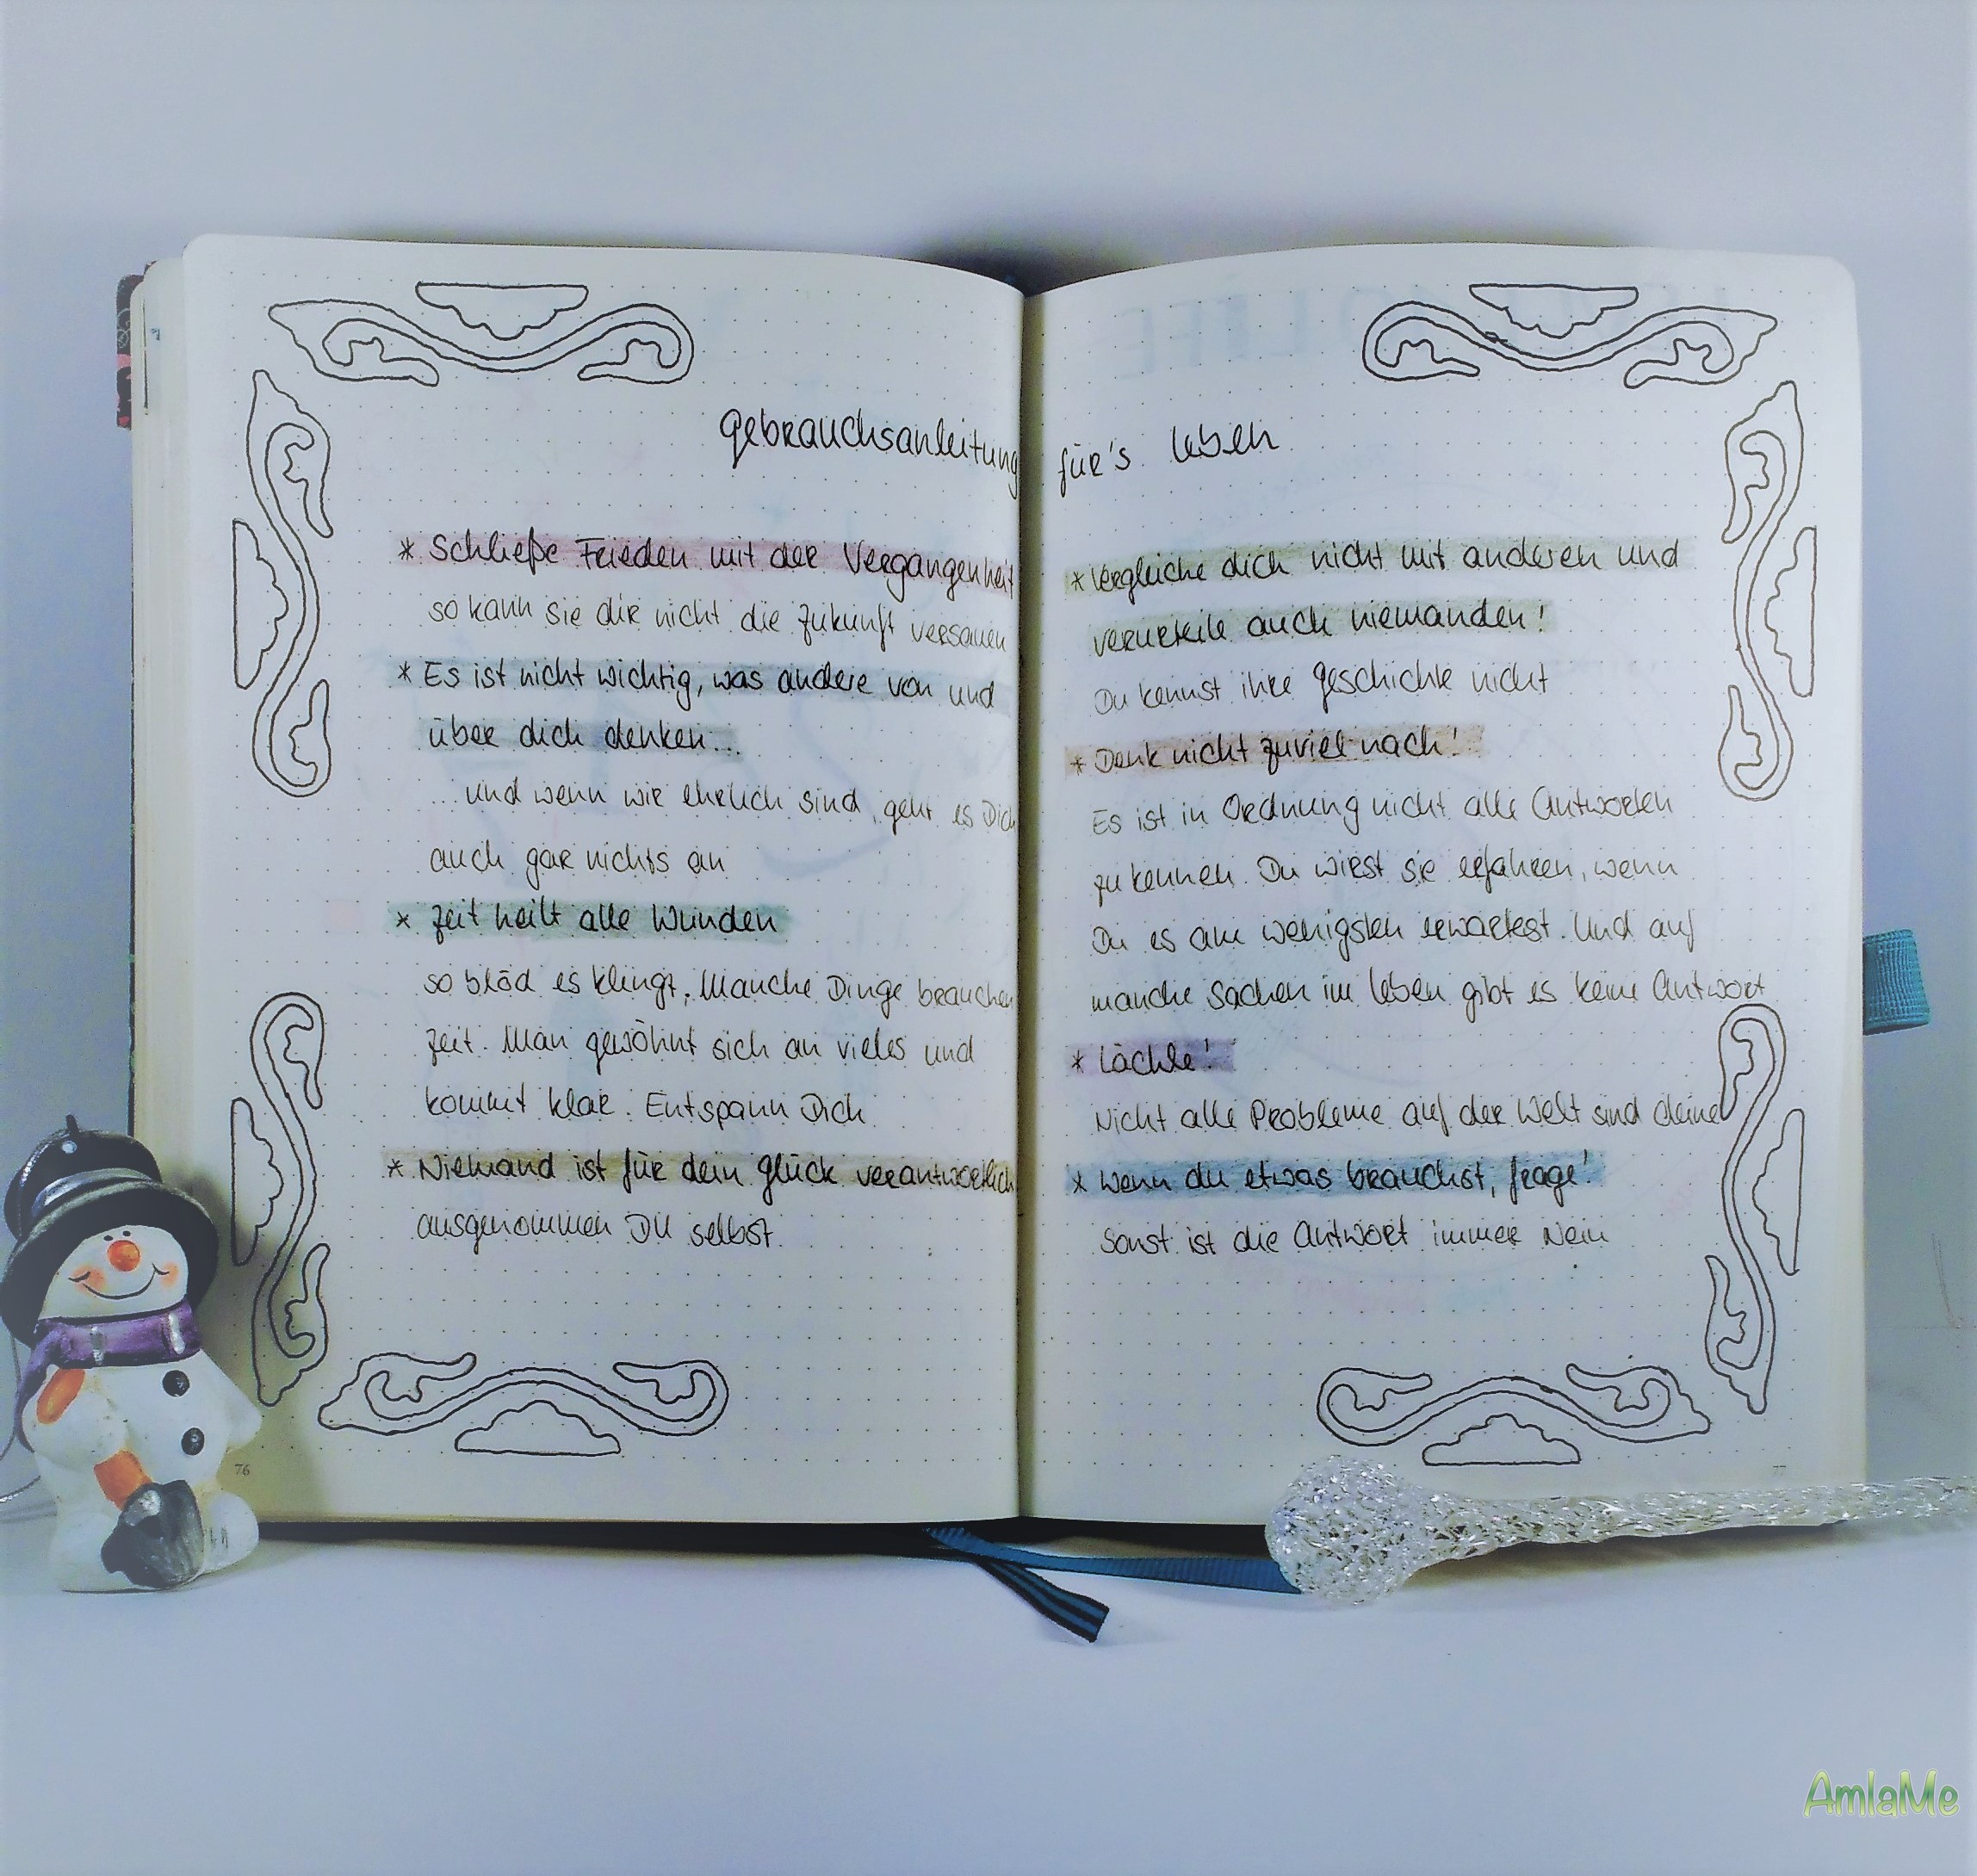 Gebrauchsanleitung für's Leben
* Schließe Frieden mit der Vergangenheit
so kann sie dir nicht die Zukunft versauen
* Es ist nicht wichtig, was andere von und
über dich denken...
...und wenn wir ehrlich sind, geht es Dich
auch gar nichts an
* Zeit heilt alle Wunden
so blöd es klingt. Manche Dinge brauchen
Zeit. Man gewöhnt sich an vieles und
kommt klar. Entspann Dich
* Niemand ist für dein Glück verantwortlich
ausgenommen DU selbst.
76
* Vergleiche dich nicht mit anderen und
verurteile auch niemanden!
Du kennst ihre Geschichte nicht
* Denk nicht zuviel nach!
Es ist in Ordnung nicht alle Antworten
zu kennen. Du wirst sie erfahren, wenn
Du es am wenigsten erwartest. Und auf
manche Sachen im Leben gibt es keine Antwort
* Lächle!
Nicht alle Probleme auf der Welt sind deine
* Wenn du etwas brauchst, frage!
Sonst ist die Antwort immer Nein
77
AmlaMe